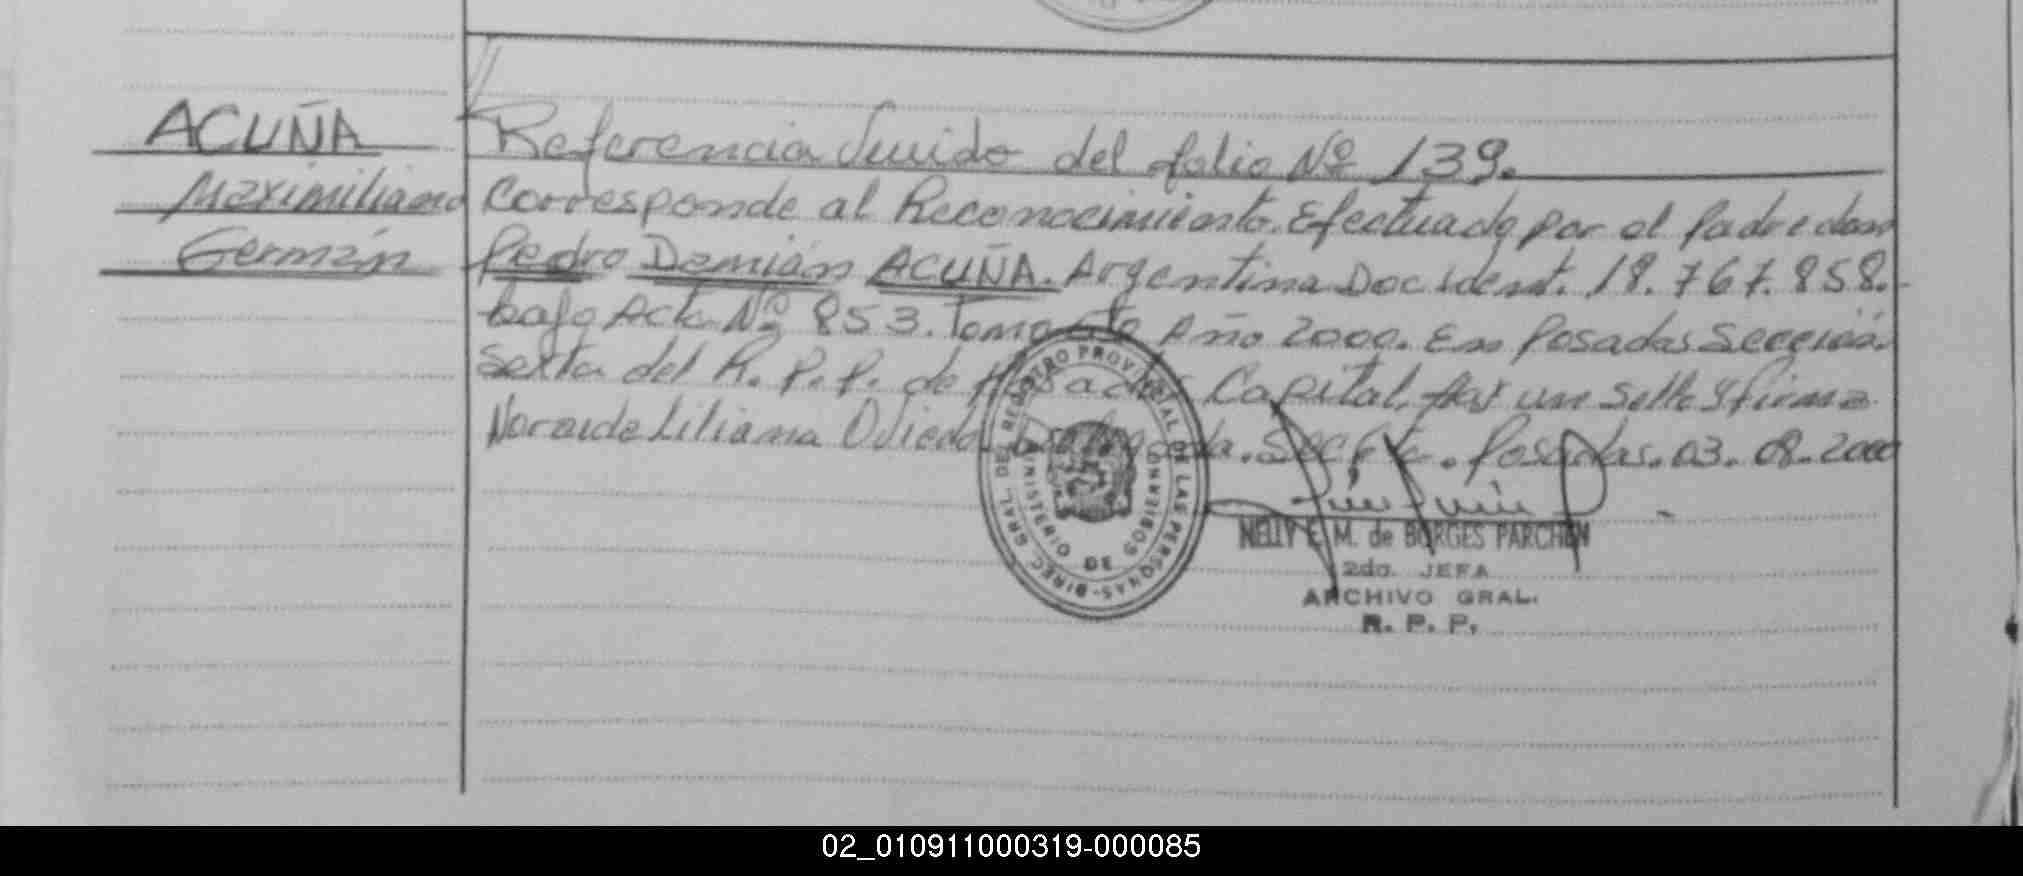 ACUÑA
Maximiliano
Germán
Referencia Venido del folio Nº 139.
Corresponde al Reconocimiento Efectuado por el Padre don
Pedro Damián ACUÑA. Argentina Doc ident. 18.767.858.
bajo Acta Nº 853. Tomo 5to Año 2000. En Posadas Sección
Sexta del R.P.P. de Posadas Capital. Hay un Sello y firma
Noraide Liliana Oviedo Sec 6ta. Posadas. 03.08.2000
DIREC. GRAL. DEL REGISTRO PROVINCIAL DE LAS PERSONAS
MINISTERIO DE GOBIERNO
NELLY E. M. de BORGES PARCHEN
2da. JEFA
ARCHIVO GRAL.
R. P. P.
02_010911000319-000085